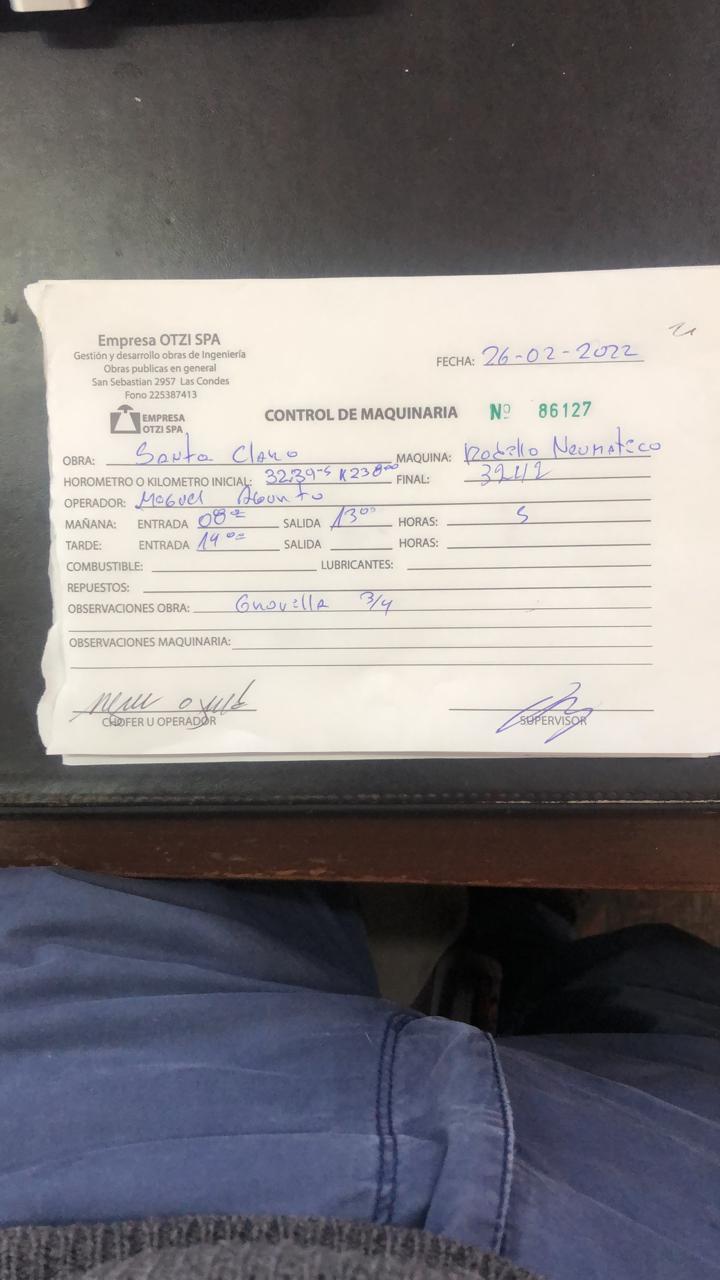 Empresa OTZI SPA
Gestión y desarrollo obras de Ingeniería
Obras publicas en general
San Sebastian 2957 Las Condes
Fono 225387413
FECHA: 26-02-2022
EMPRESA
OTZI SPA
CONTROL DE MAQUINARIA Nº 86127
OBRA: Santa Clara MAQUINA: Rodillo Neumatico
HOROMETRO O KILOMETRO INICIAL: 3239-5 FINAL: 3242
OPERADOR: Miguel
MAÑANA: ENTRADA 08 00 SALIDA 13 00 HORAS: 5
TARDE: ENTRADA 14 00 SALIDA HORAS:
COMBUSTIBLE: LUBRICANTES:
REPUESTOS:
OBSERVACIONES OBRA: Gravilla 3/4
OBSERVACIONES MAQUINARIA:
CHOFER U OPERADOR SUPERVISOR